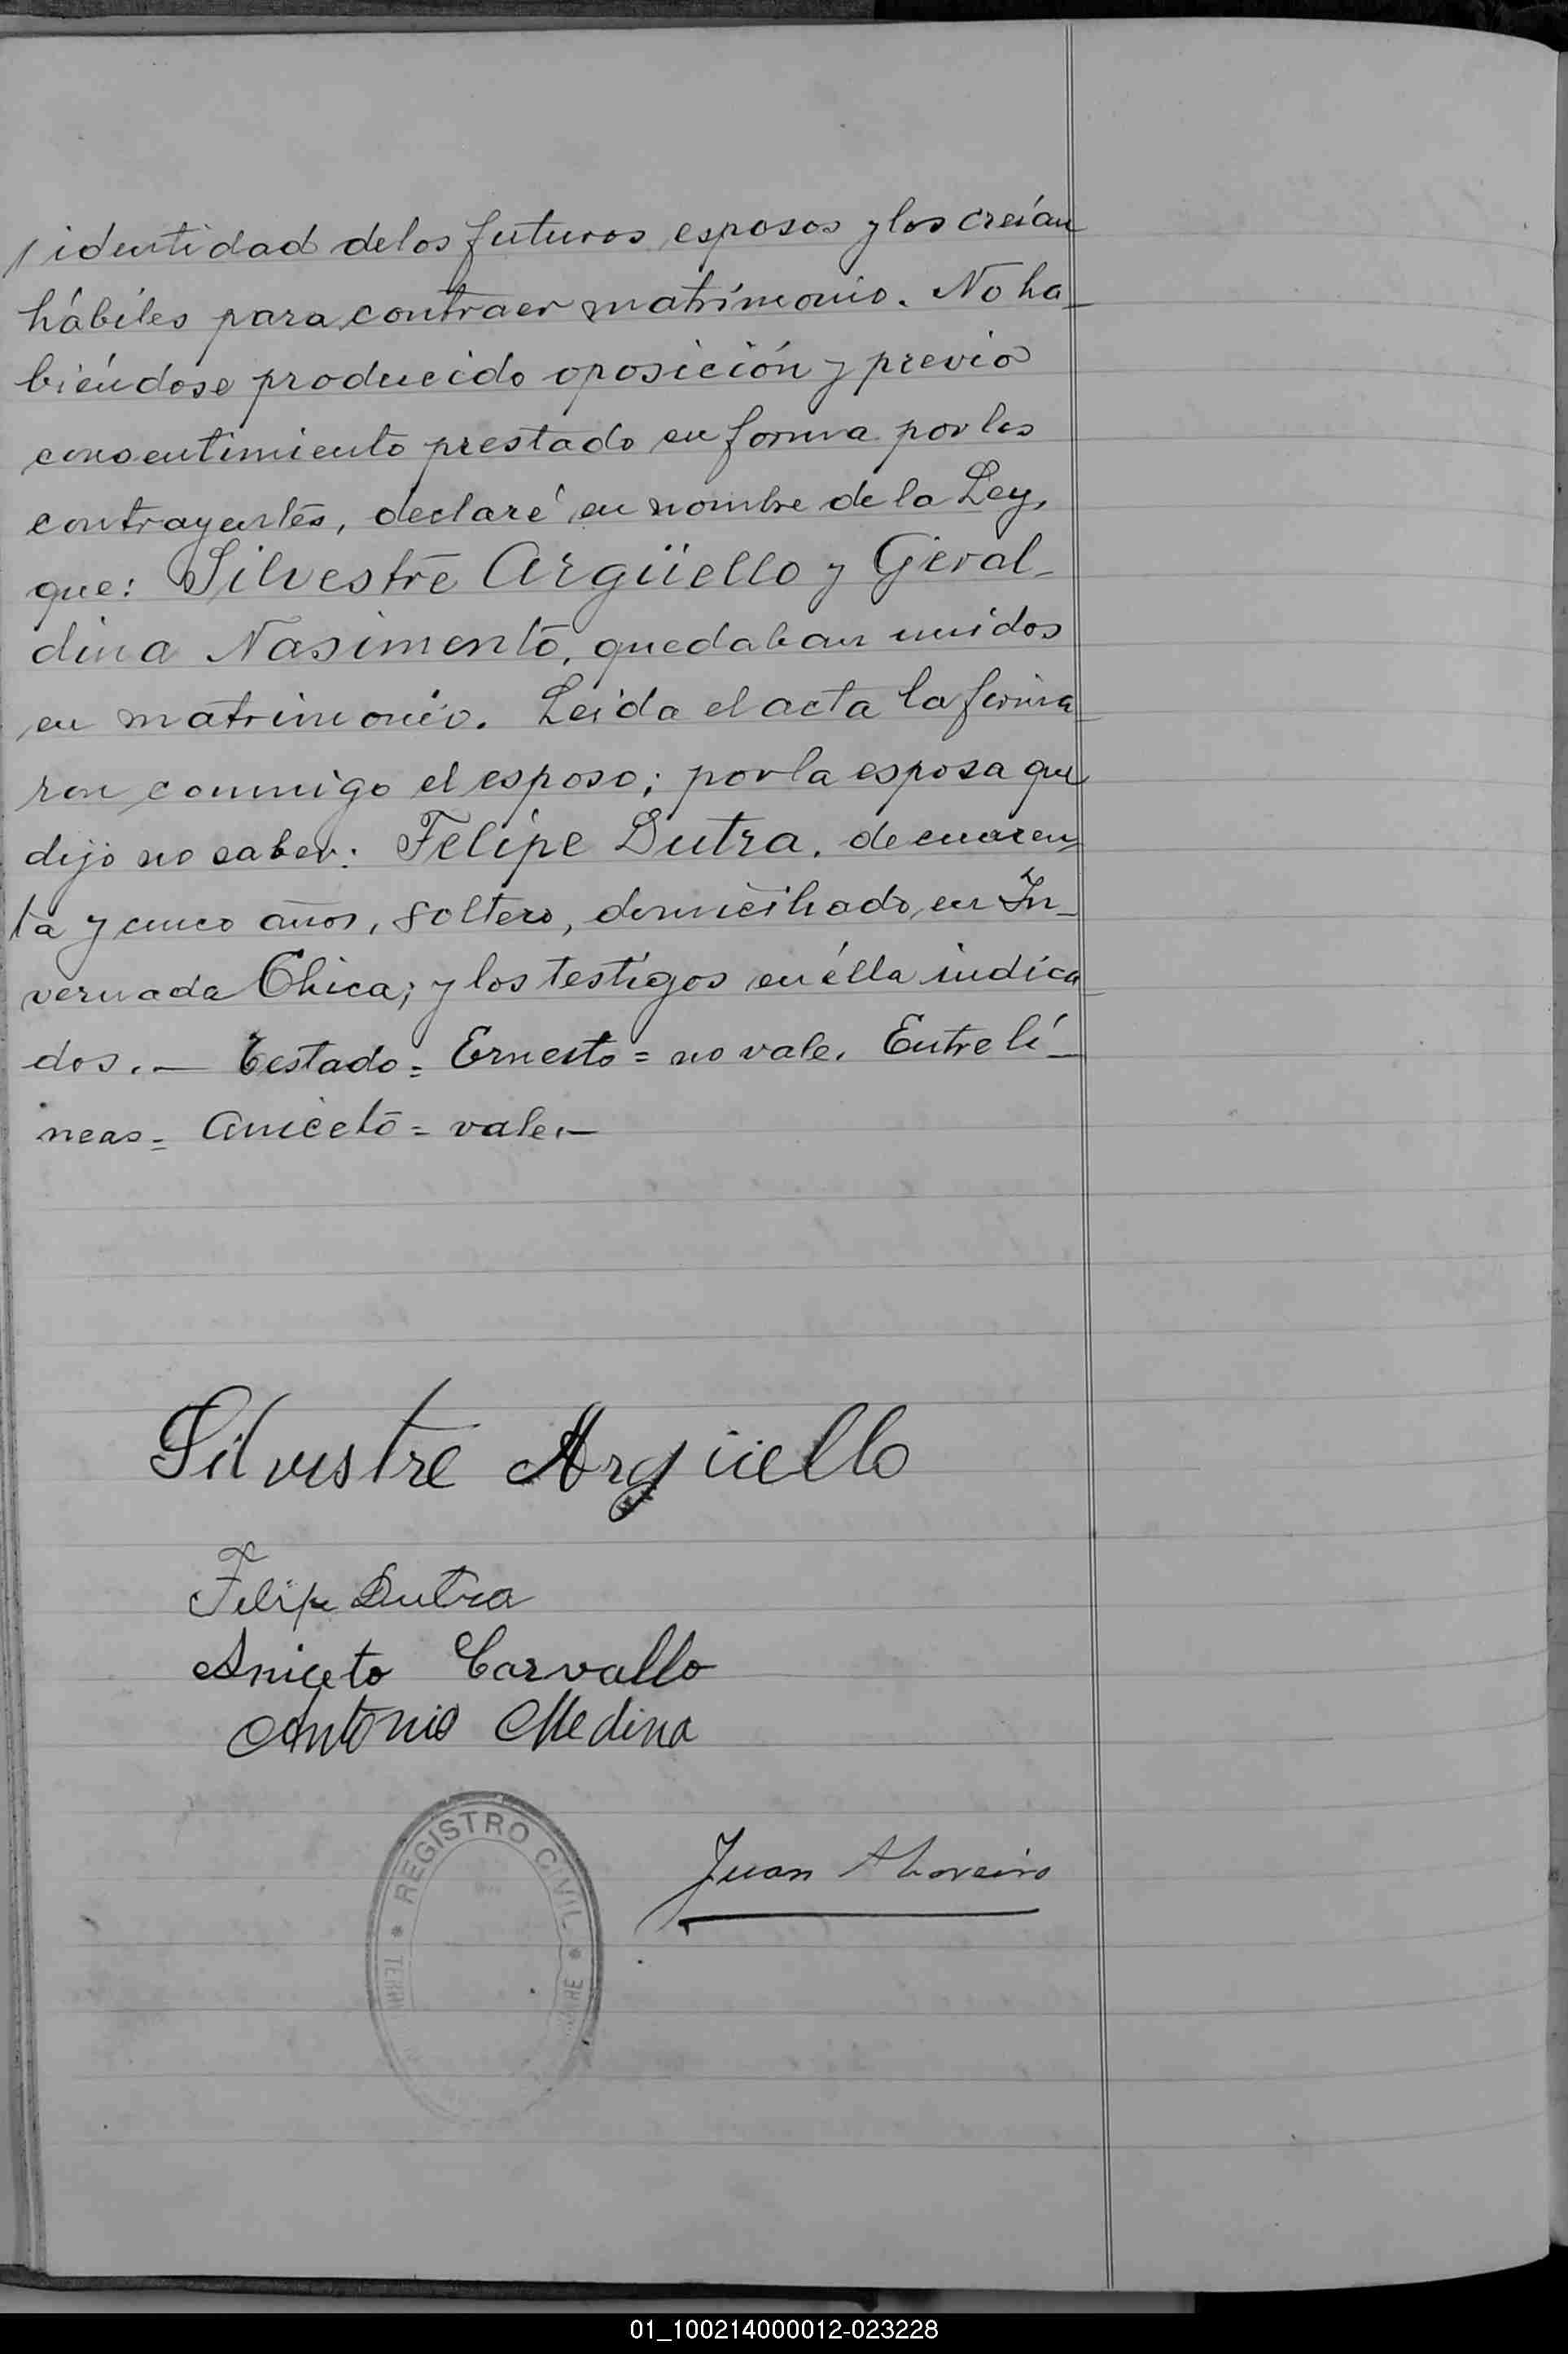 / identidad de los futuros esposos y los creían
hábiles para contraer matrimonio. No ha-
biéndose producido oposición y previo
consentimiento prestado en forma por los
contrayentes, declaré en nombre de la Ley,
que: Silvestre Argüello y Geral-
dina Nasimento, quedaban unidos
en matrimonio. Leida el acta la firma-
ron conmigo el esposo; por la esposa que
dijo no saber: Felipe Dutra, de cuaren-
ta y cinco años, soltero, domiciliado en In-
vernada Chica; y los testigos en élla indica-
dos.— Testado = Ernesto = no vale. Entre lí-
neas = Aniceto = vale.—
Silvestre Argüello
Felipe Dutra
Aniceto Carvallo
Antonio Medina
Juan
REGISTRO CIVIL
01_100214000012-023228